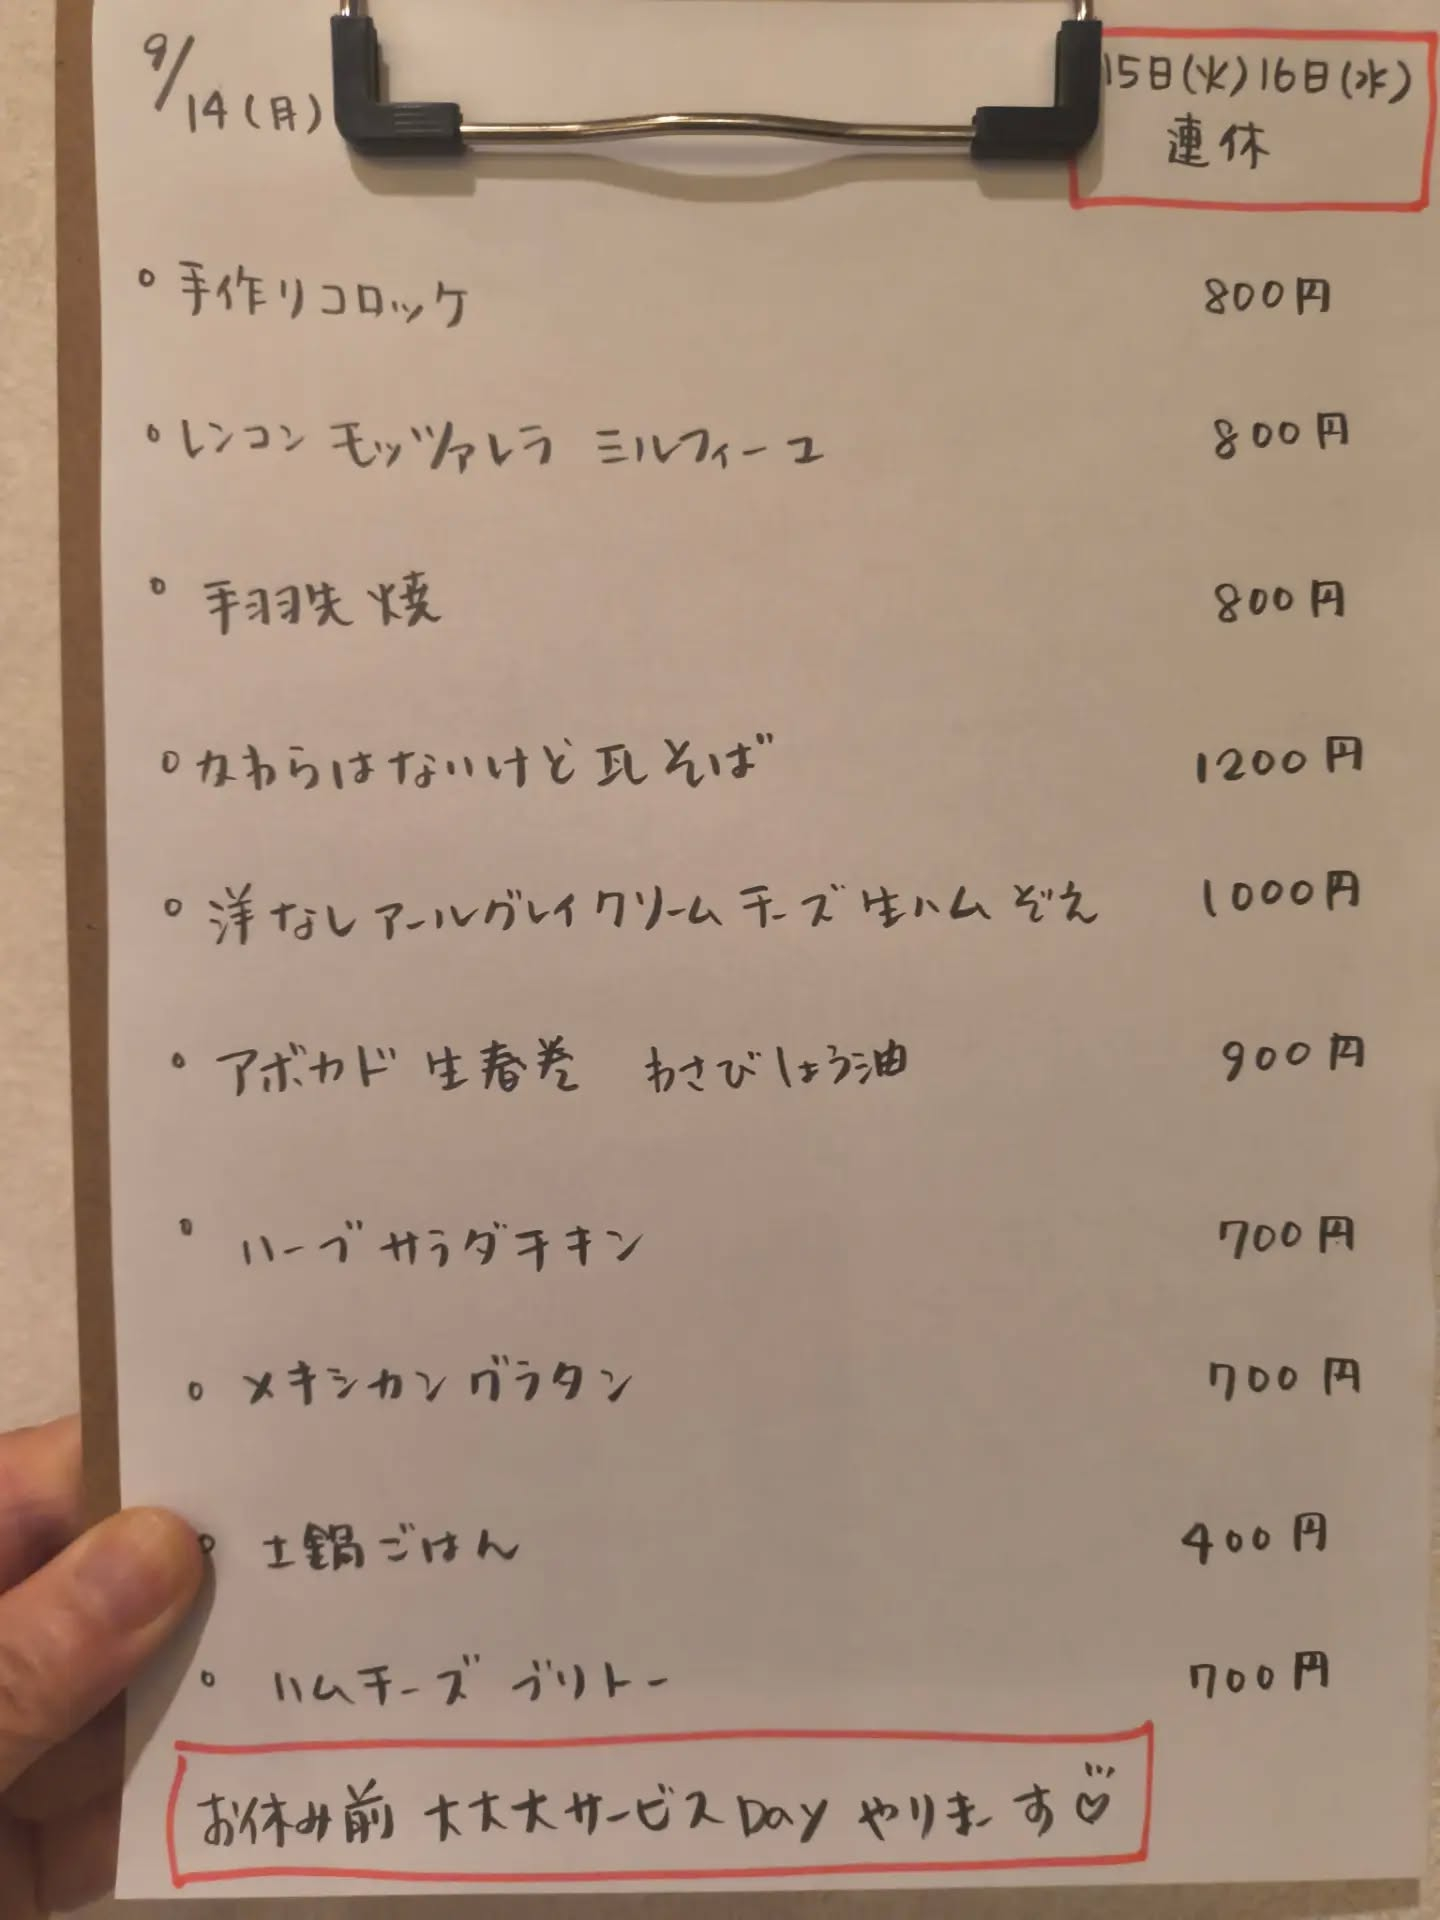 9/14(月)
15日(火)16日(水)
連休
○ 手作りコロッケ 800円
○ レンコン モッツァレラ ミルフィーユ 800円
○ 手羽先焼 800円
○ かわらはないけど瓦そば 1200円
○ 洋なしアールグレイクリームチーズ生ハムぞえ 1000円
○ アボカド生春巻 わさびしょう油 900円
○ ハーブサラダチキン 700円
○ メキシカングラタン 700円
○ 土鍋ごはん 400円
○ ハムチーズブリトー 700円
お休み前 大大大サービスDay やりまーす♡